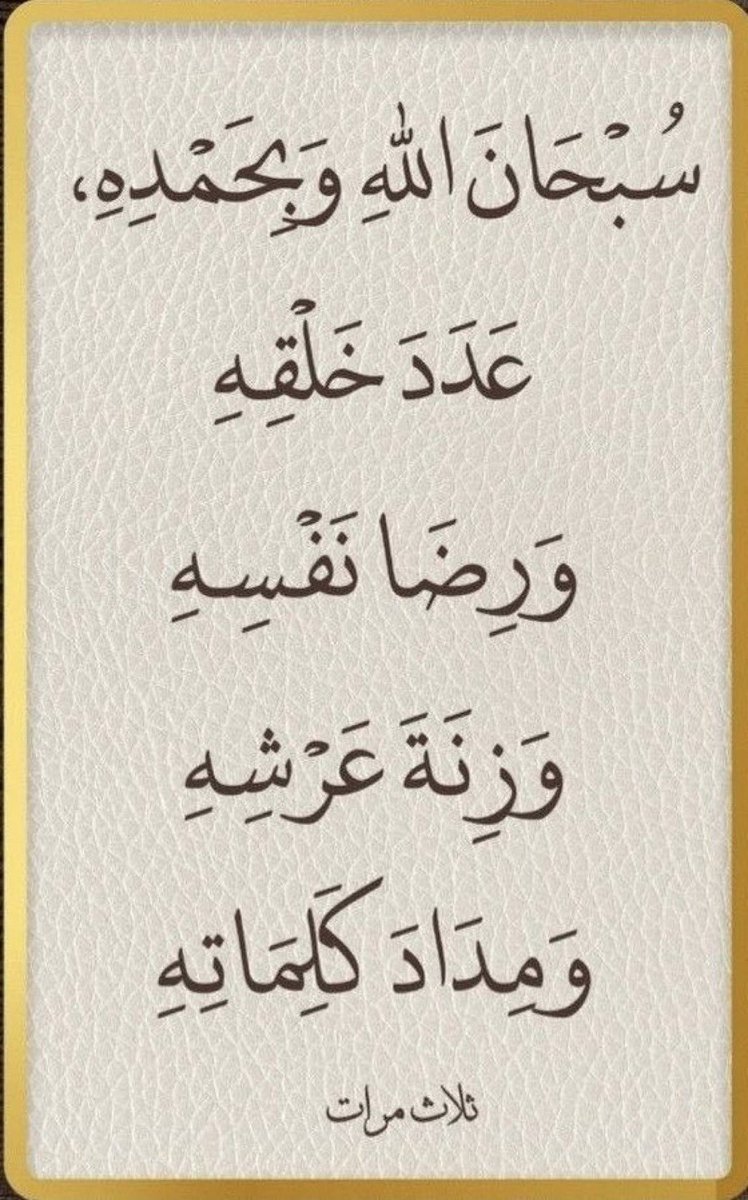 سُبْحَانَ اللهِ وَبِحَمْدِهِ،
عَدَدَ خَلْقِهِ
وَرِضَا نَفْسِهِ
وَزِنَةَ عَرْشِهِ
وَمِدَادَ كَلِمَاتِهِ
ثلاث مرات